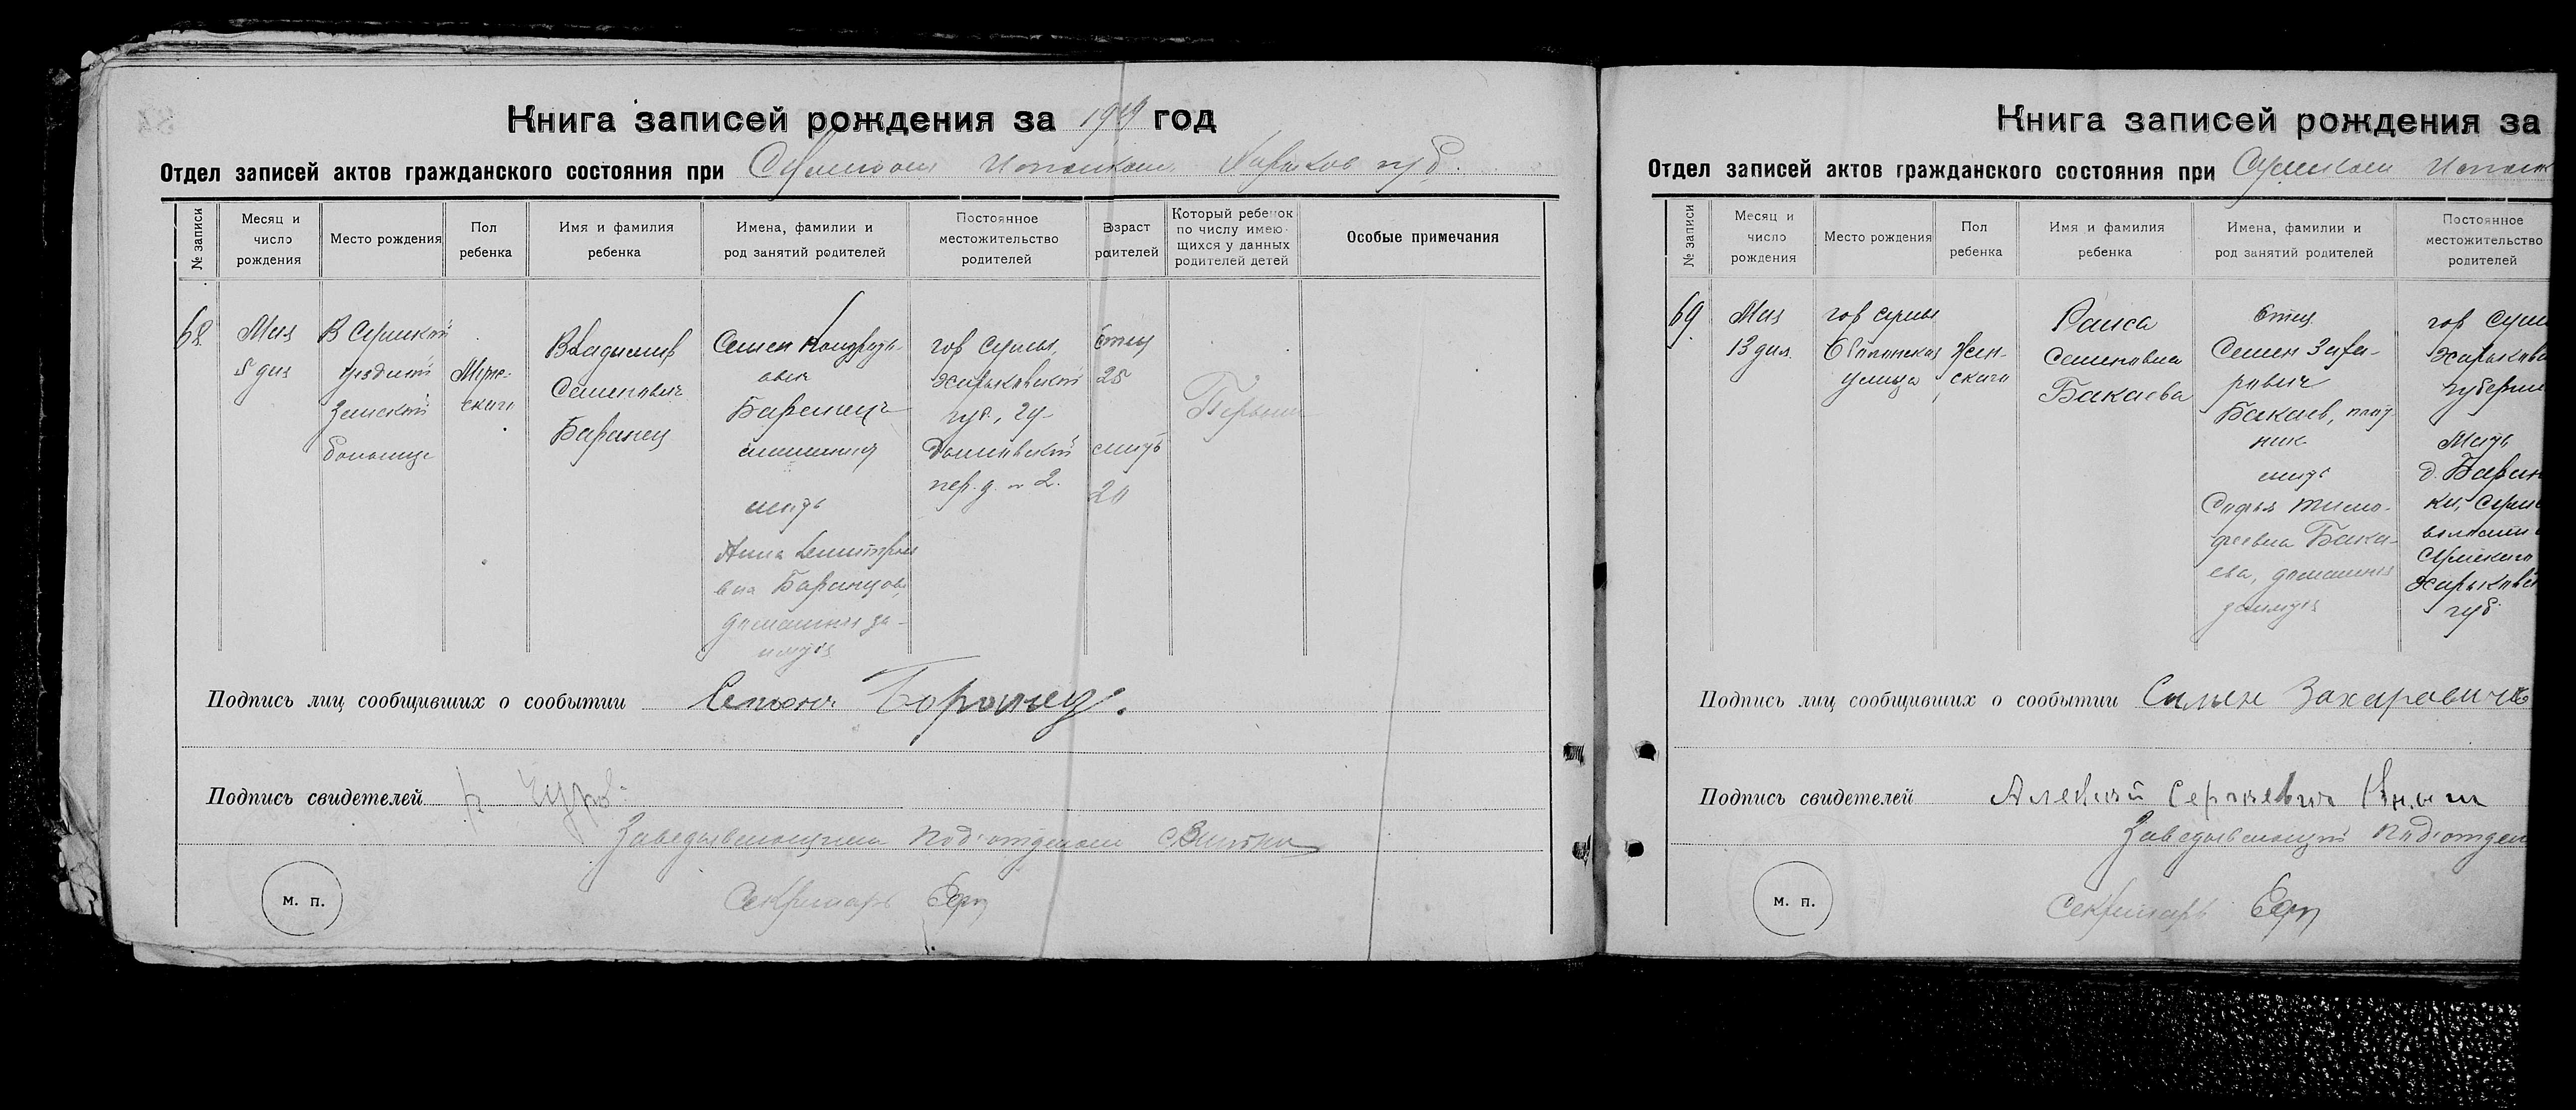 Книга записей рождения за 1919 год
Отдел записей актов гражданского состояния при Сумском Исполком. Харьков губ.
№ записи
Месяц и
число
рождения
Место рождения
Пол
ребенка
Имя и фамилия
ребенка
Имена, фамилии и
род занятий родителей
Постоянное
местожительство
родителей
Возраст
родителей
Который ребенок
по числу имею-
щихся у данных
родителей детей
Особые примечания
68
Мая
5 дня
В Сумской
уездной
Земской
больнице
Муже-
ского
Владимир
Семенович
Баранец
Семен Кондрать-
евич
Баранец
мать
Анна Дмитрие
вна Баранцова,
домашняя за-
нятия
гор Сумы,
Харьковской
губ.,
пер. д. № 2.
Отец
25
мать
20
Первый
Подпись лиц сообщивших о событии Семенъ Боронец.
Подпись свидетелей
Заведывающий Под'отделом
Секретарь
м. п.
Книга записей рождения за
Отдел записей актов гражданского состояния при Сумском Исполк
№ записи
Месяц и
число
рождения
Место рождения
Пол
ребенка
Имя и фамилия
ребенка
Имена, фамилии и
род занятий родителей
Постоянное
местожительство
родителей
69
Мая
13 дня
гор Сумы
улица
Жен-
ского
Раиса
Семеновна
Бакаева
Отец
Семен Заха-
рович
Бакаев, плот-
ник
мать
Софья Тимо-
феевна Бака-
ева, домашняя
занятия
гор Сум
Харьковс
губернии
Мать
д. Баран
ки, Сумс
волости
Сумского
Харьковск
губ.
Подпись лиц сообщивших о событии Семен Захаравичъ
Подпись свидетелей Алексей Сергеевич
Заведывающий Под'отдел
Секретарь
м. п.